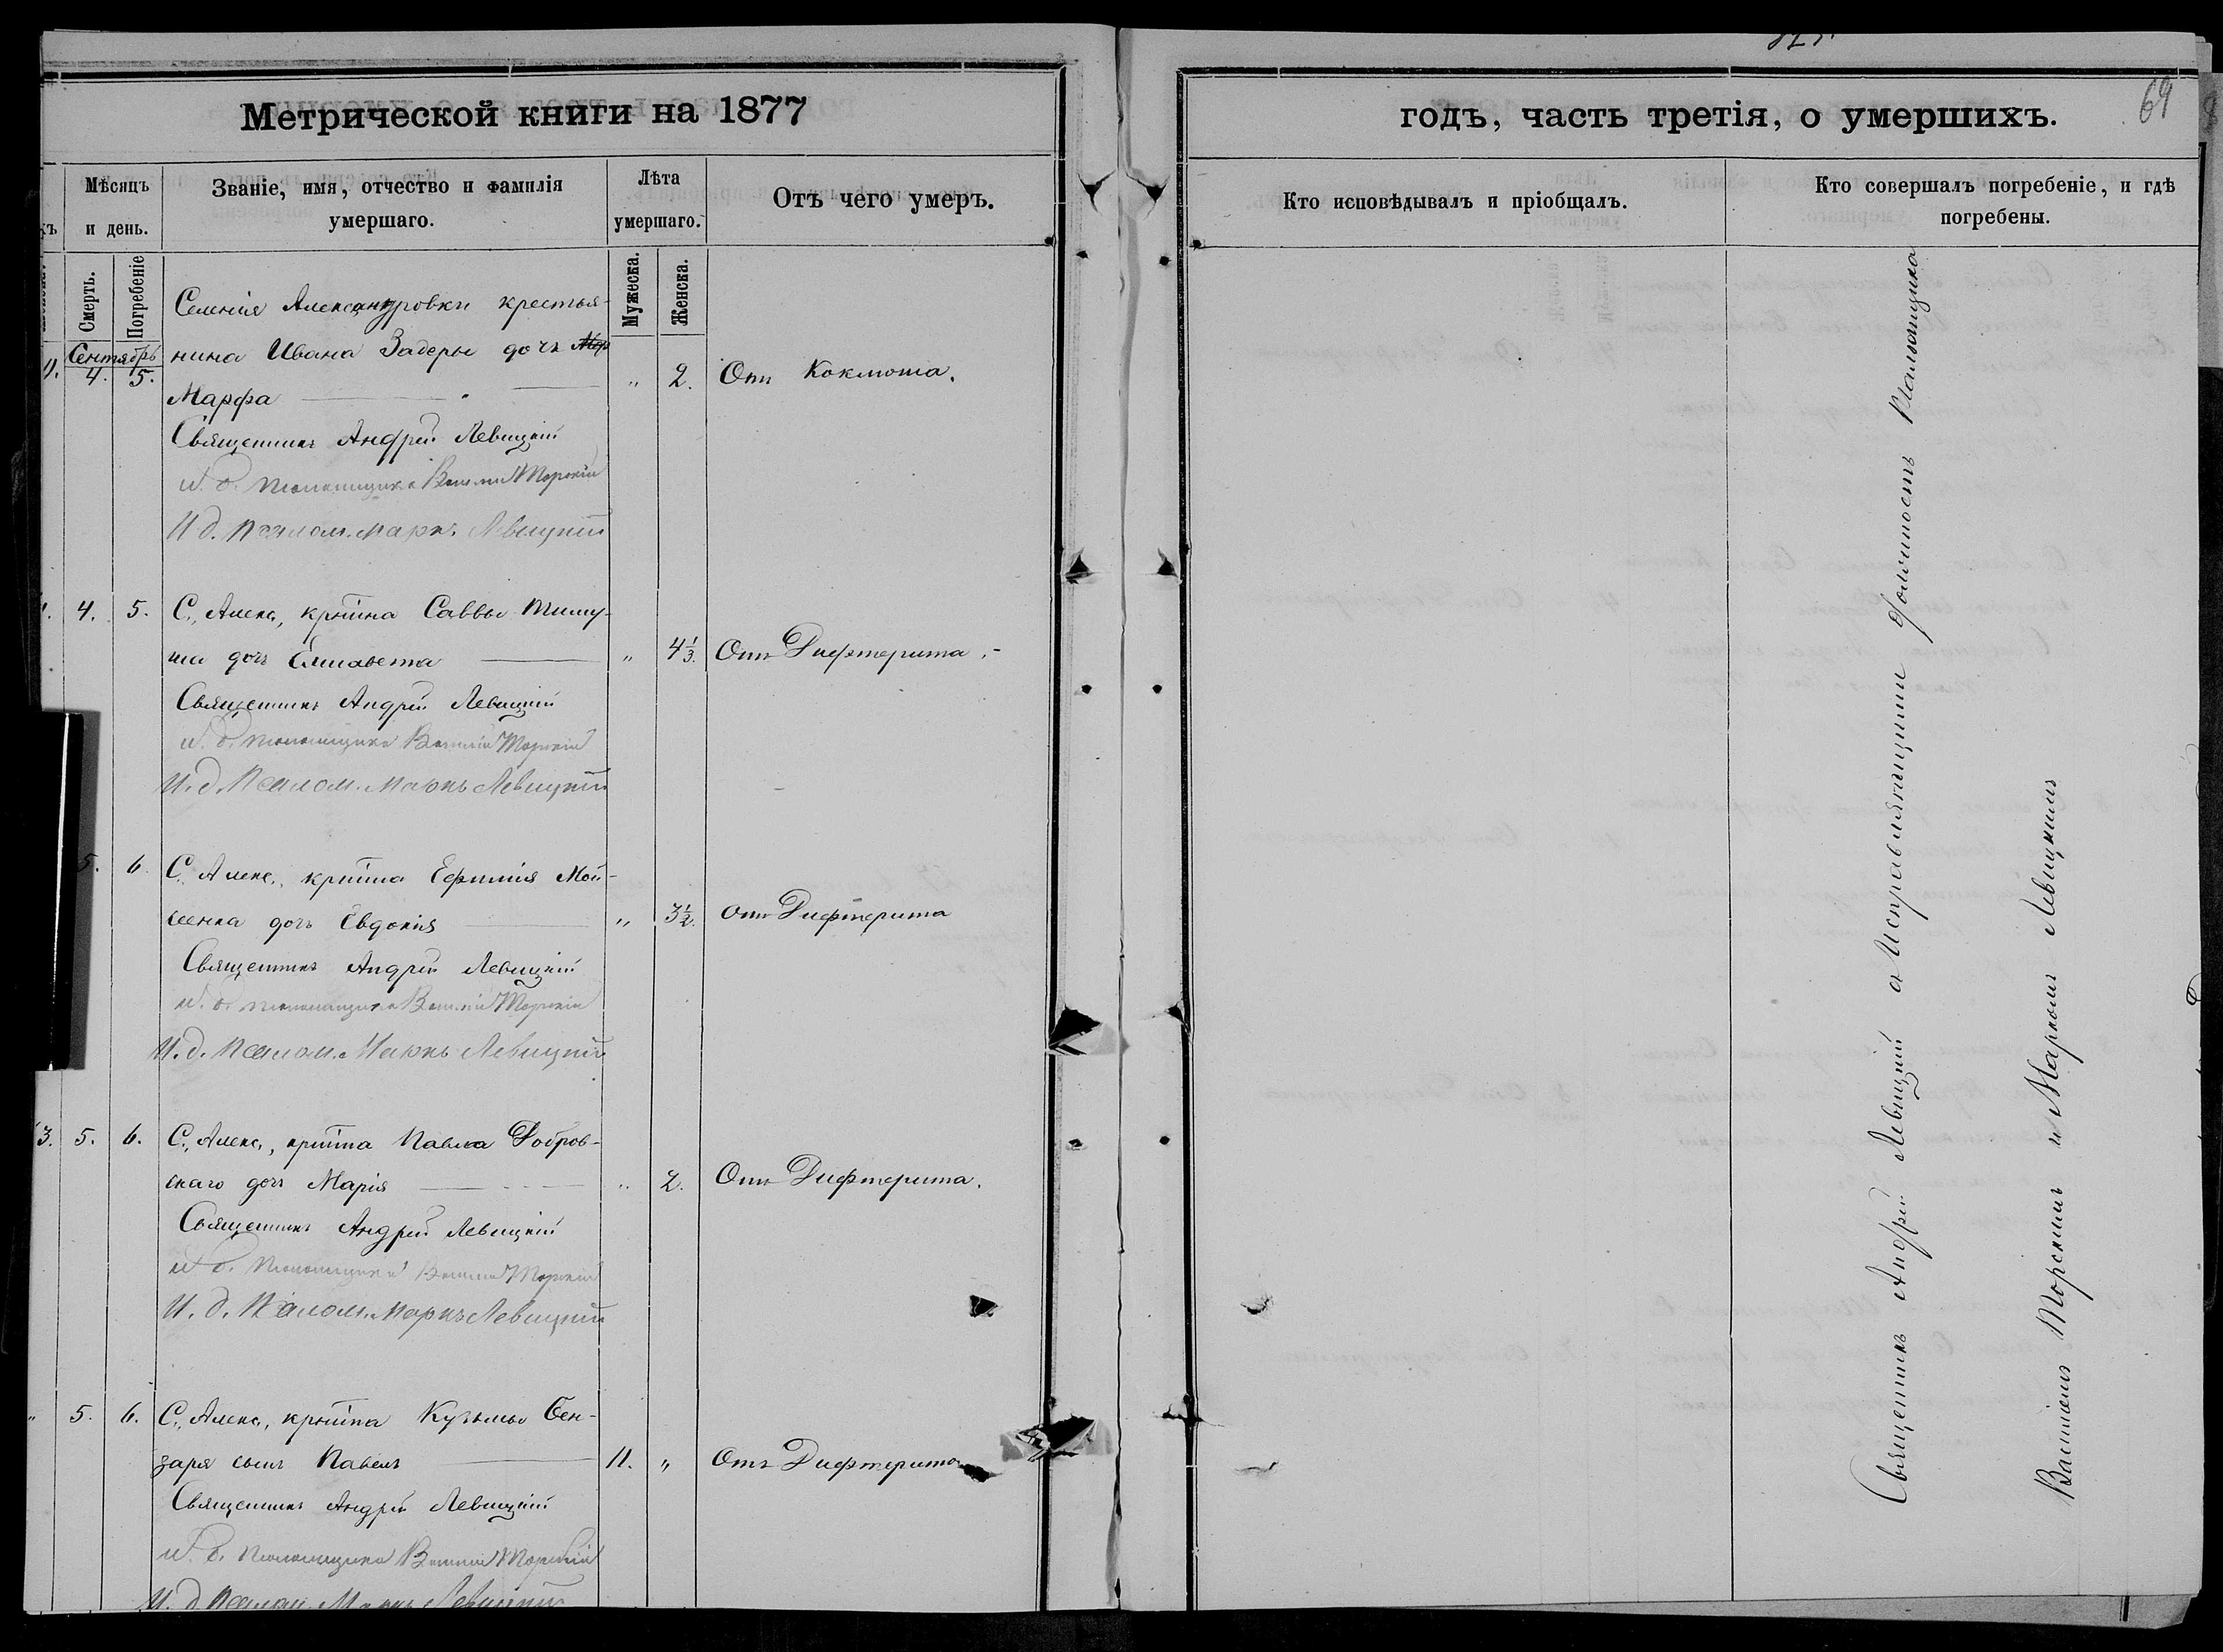 Метрической книги на 1877
Мѣсяцъ и день.
Званіе, имя, отчество и фамилія умершаго.
Лѣта умершаго.
Отъ чего умеръ.
Смерть.
Погребеніе
Мужеска.
Женска.
Сентябрь
4. 5.
Селенія Александровки крестья-
нина Ивана Задеры дочь
Марфа
" 2. Отъ Коклюша.
Священникъ Андрей Левицкій
И. д. псаломщика Василій Торскій
И. д. Псалом. Маркъ Левицкій
4. 5. С. Алекс. кртнина Саввы Тиму-
ша дочь Елисавета
" 4 1/3. Отъ Дифтерита.-
Священникъ Андрей Левицкій
И. д. псаломщика Василій Торскій
И. д. Псалом. Маркъ Левицкій
5. 6. С. Алекс. кртнина Ефимія Мой-
сеенка дочь Евдокія
" 3 1/2. Отъ Дифтерита
Священникъ Андрей Левицкій
И. д. псаломщика Василій Торскій
И. д. Псалом. Маркъ Левицкій
3. 5. 6. С. Алекс. кртнина Павла Добров-
скаго дочь Марія
" 2. Отъ Дифтерита.
Священникъ Андрей Левицкій
И. д. псаломщика Василій Торскій
И. д. Псалом. Маркъ Левицкій
" 5. 6. С. Алекс. кртнина Кузьмы Бен-
заря сынъ Павелъ
11. " Отъ Дифтерита
Священникъ Андрей Левицкій
И. д. псаломщика Василій Торскій
И. д. Псалом. Маркъ Левицкій
годъ, часть третія, о умершихъ.
69
Кто исповѣдывалъ и пріобщалъ.
Кто совершалъ погребеніе, и гдѣ погребены.
Священникъ Андрей Левицкій съ Исправляющими должность Псаломщика
Василіемъ Торскимъ и Маркомъ Левицкимъ